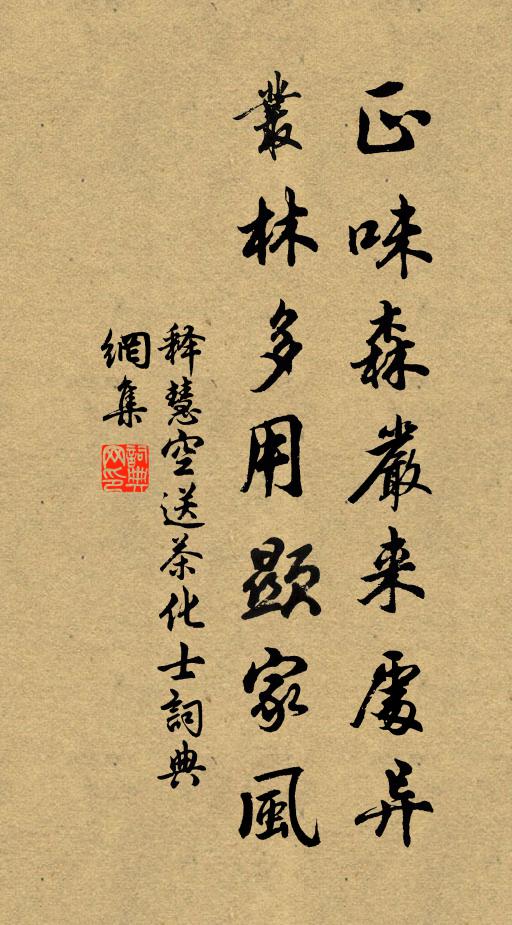 正味森嚴来處异
叢林多用顯家風
释慧空送茶化士詞典
網集
詞典网印